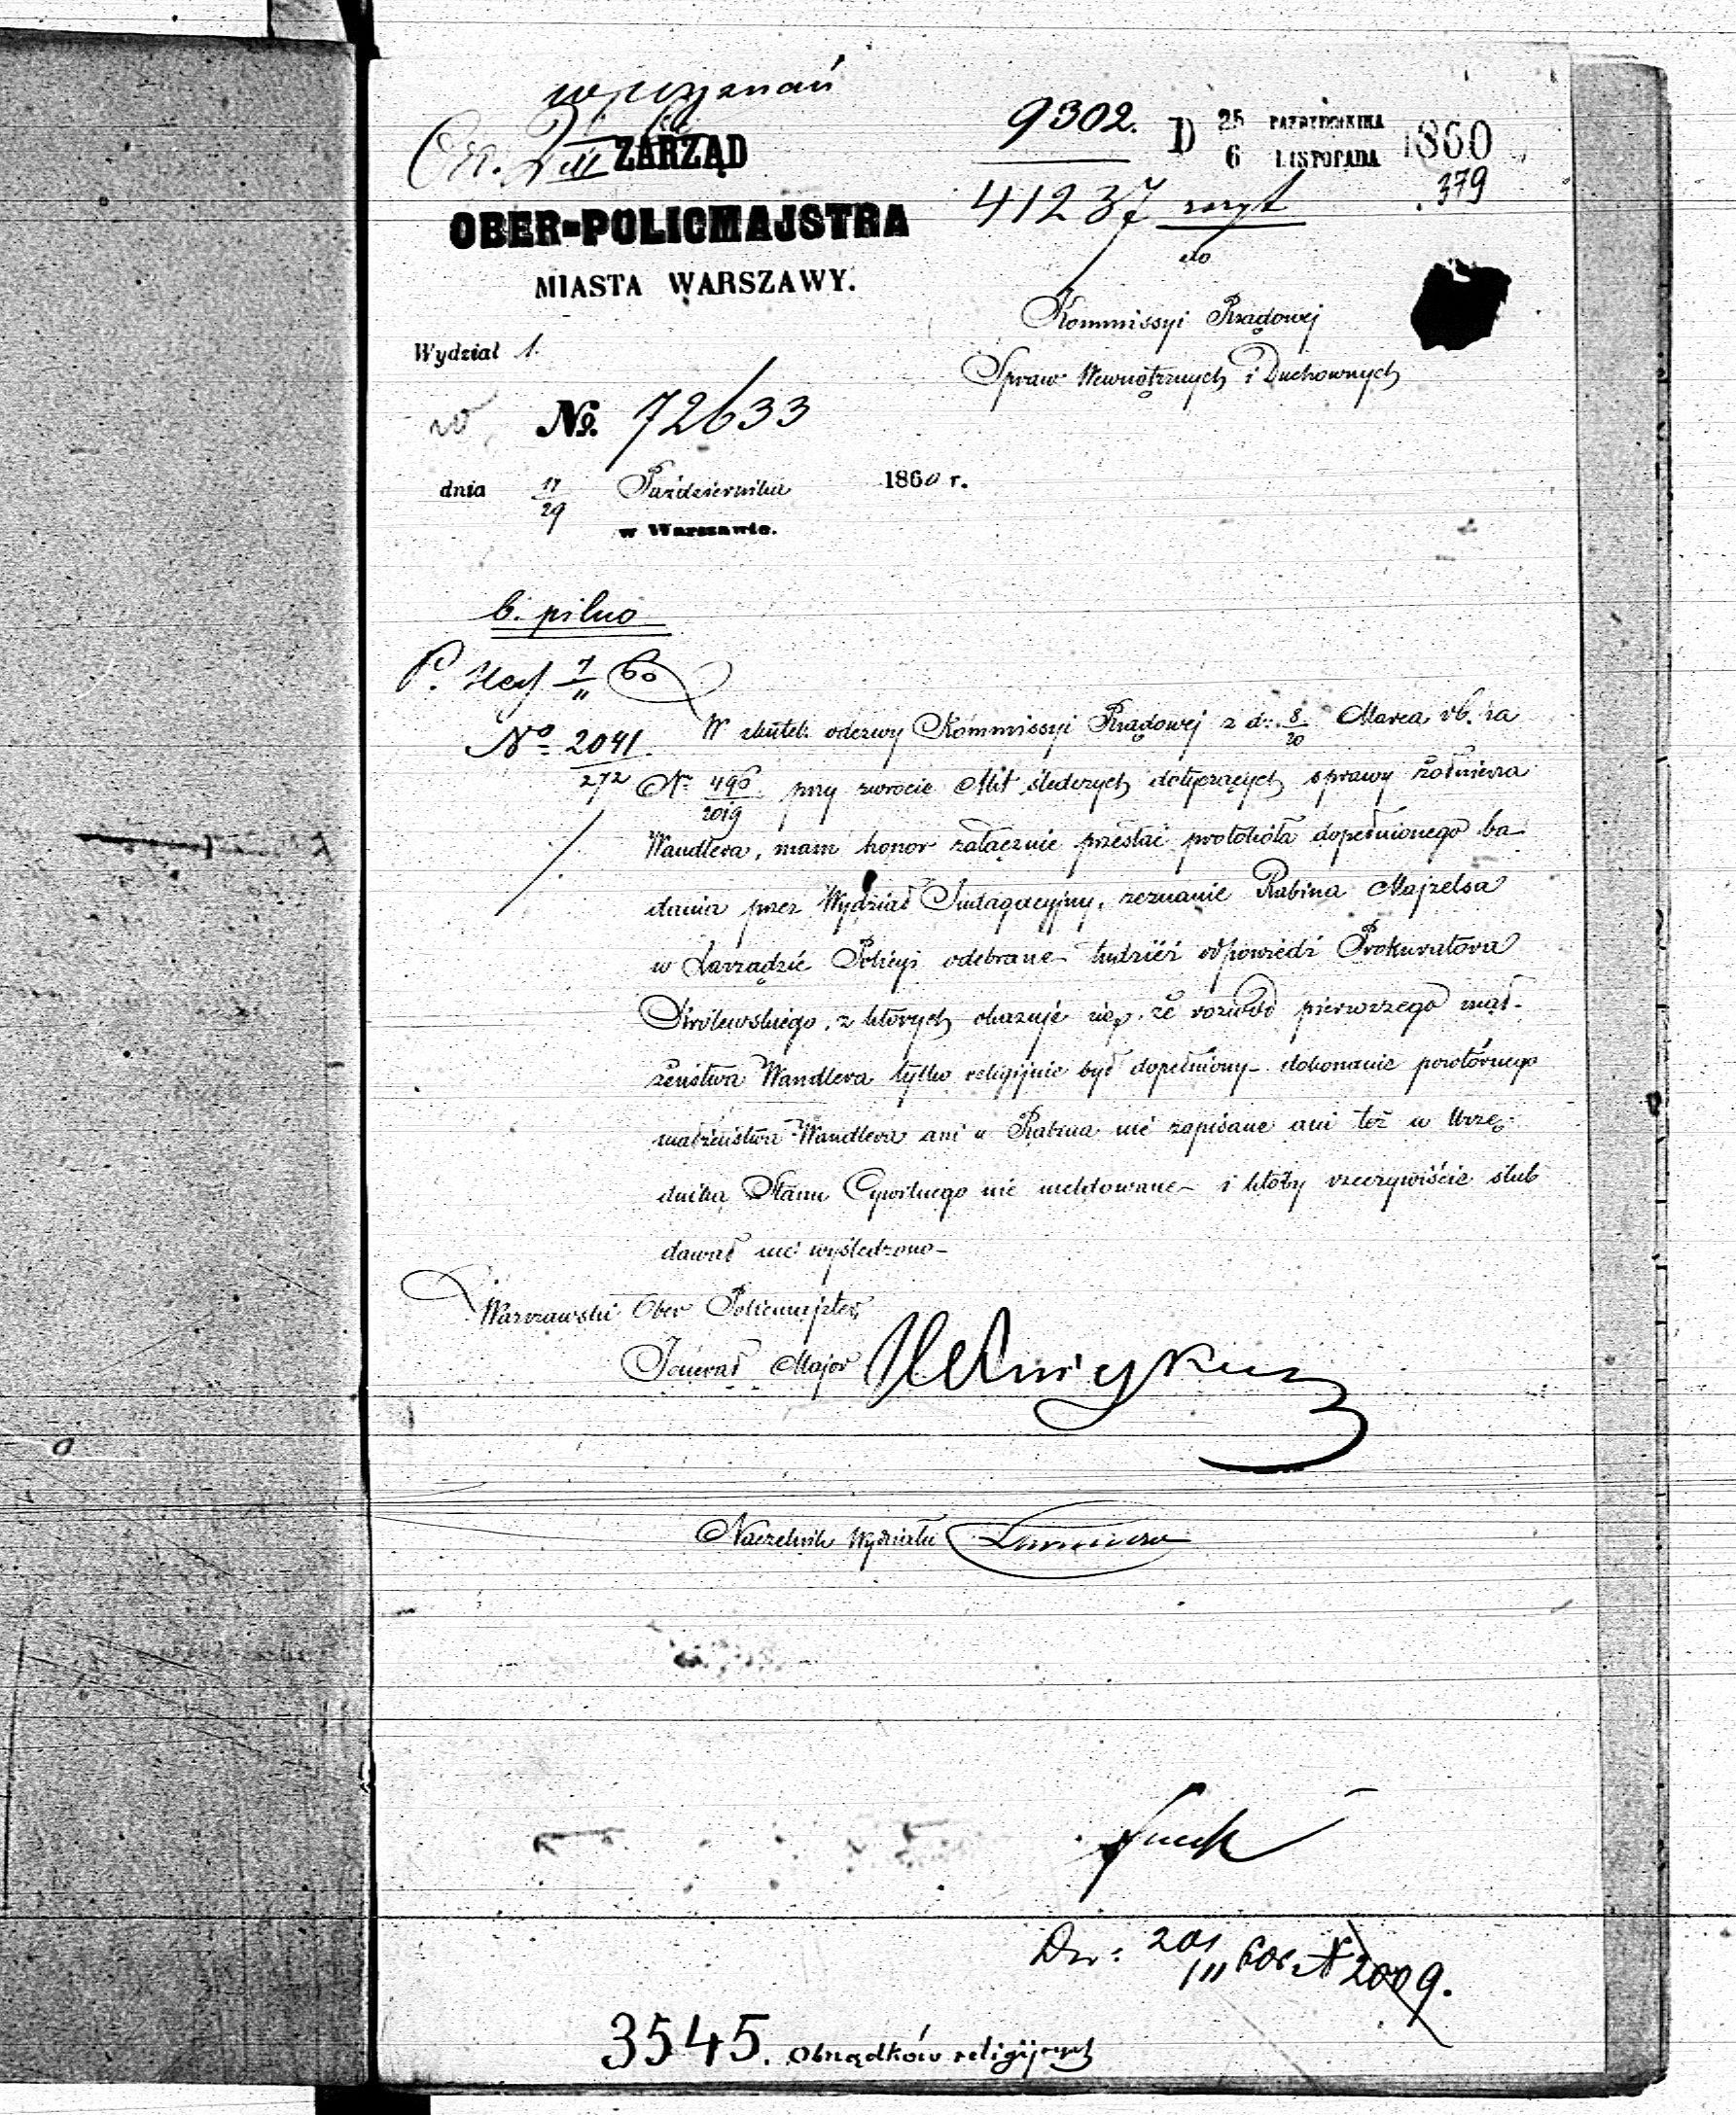 wyznań
ZARZĄD
OBER-POLICMAJSTRA
MIASTA WARSZAWY.
Wydział 1.
No. 72633
dnia 17/29 Października 1860 r.
w Warszawie.
9302. D 25 PAŹDZIERNIKA 6 LISTOPADA 1860
379
41237
do
Kommissyi Rządowej
Spraw Wewnętrznych i Duchownych
b. pilno
P. 7/11 60
No 2041/272
W skutek odezwy Kommissyi Rządowej z d: 8/20 Marca rb. za
No 496/2019 przy zwrocie Akt śledczych dotyczących sprawy żołnierza
Wandlera, mam honor załącznie przesłać protokóła dopełnionego ba-
dania przez Wydział Indagacyjny, zeznanie Rabina Majzelsa
w Zarządzie Policyi odebrane- tudzież odpowiedź Prokuratora
Królewskiego, z których okazuje się, że rozwód pierwszego mał-
żeństwa Wandlera tylko religijnie był dopełniony- dokonanie powtórnego
małżeństwa Wandlera ani u Rabina nie zapisane ani też u Urzę-
dnika Stanu Cywilnego nie meldowane- i ktoby rzeczywiście ślub
dawał nie wyśledzono-
Warszawski Ober Policmajster,
Jenerał Major
Naczelnik Wydziału
Dz: 201
III 2009.
3545. Obrządków religijnych